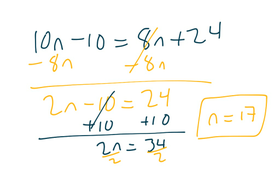 10n - 10 = 8n + 24
- 8n - 8n
2n - 10 = 24
+10 +10
2n = 34
2 2
n = 17